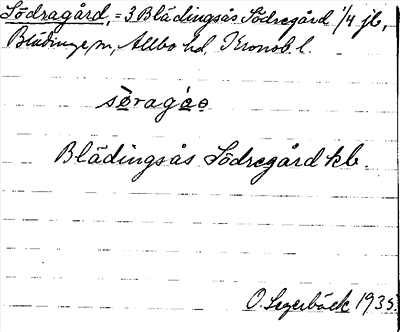 Södragård, = 3 Blädingsås Södregård 1/4 jb,
Blädinge sn, Allbo hd, Kronob. l.
Blädingsås Södregård kb.
O. Segerbäck 1935.